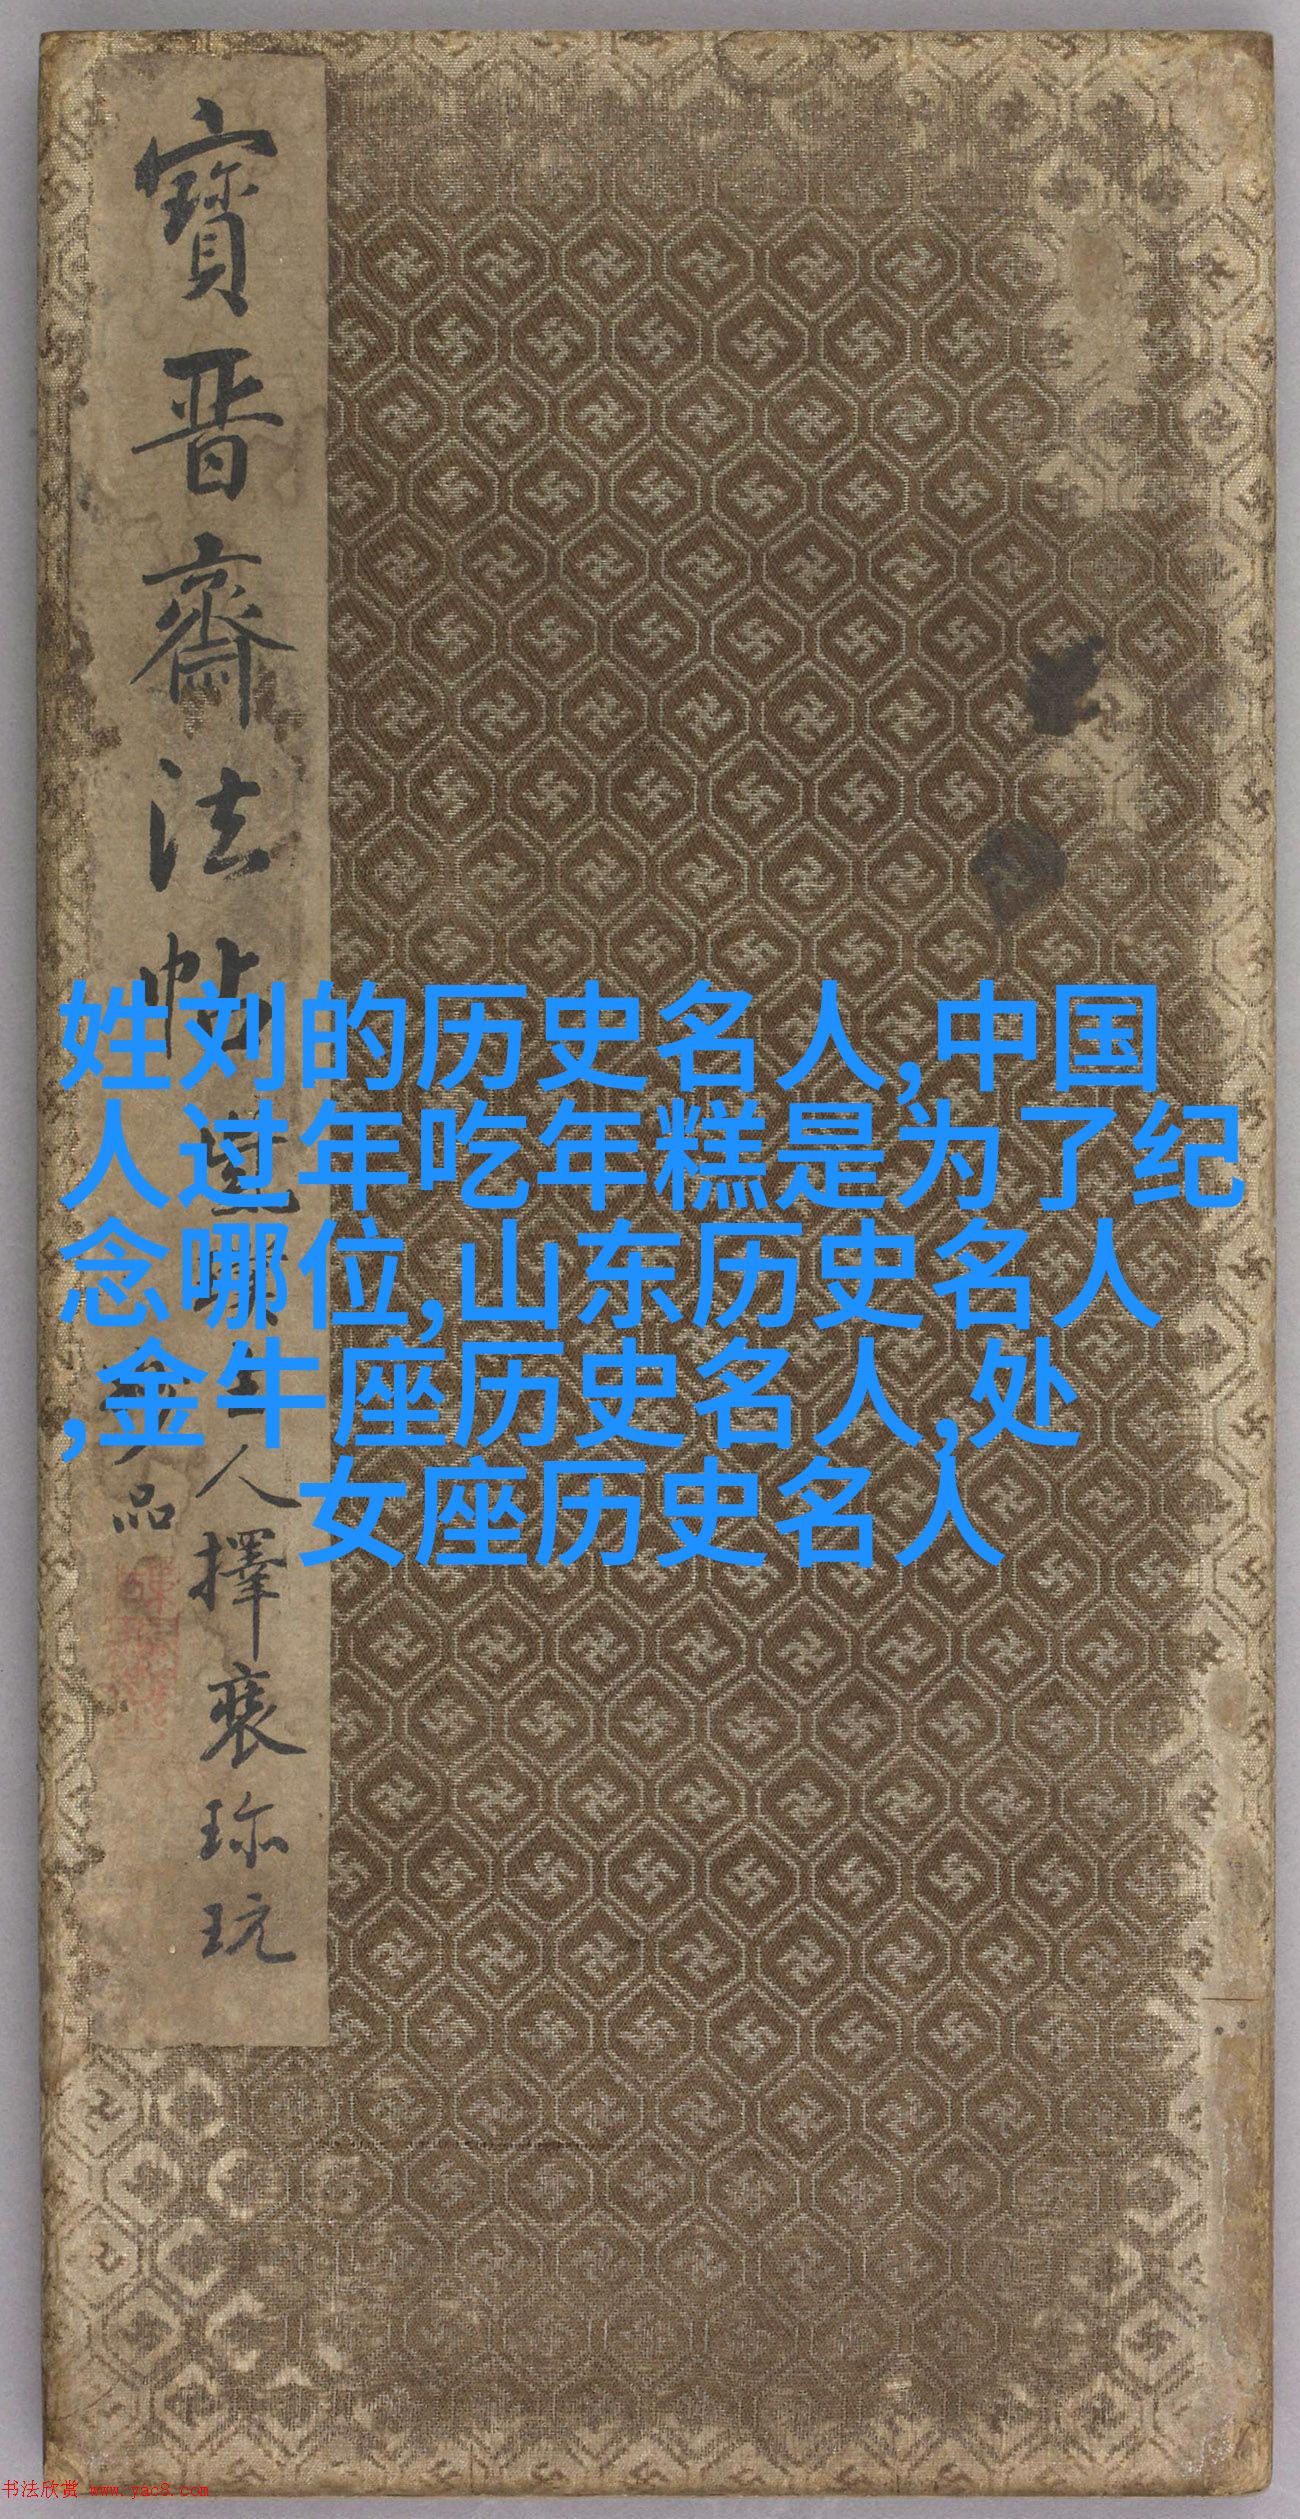 寶晉齋法帖
人擇裒珎玩
品
姓刘的历史名人,中国
人过年吃年糕是为了纪
念哪位,山东历史名人
,金牛座历史名人,处
女座历史名人
书法欣赏 www.yac8.com